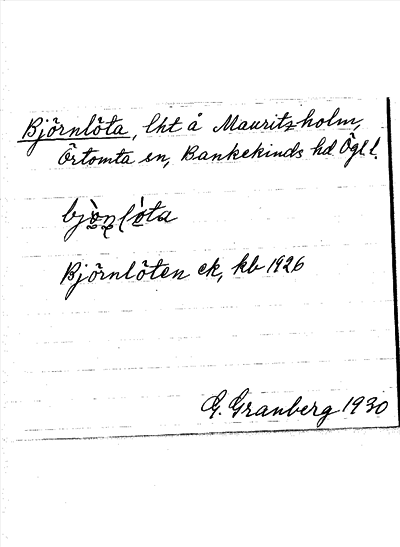 Björnlöta, lht å Mauritzholm,
Örtomta sn, Bankekinds hd Ögl l.
bjò̱ṉló̱ta
Björnlöten ek, kb 1926
G. Granberg 1930